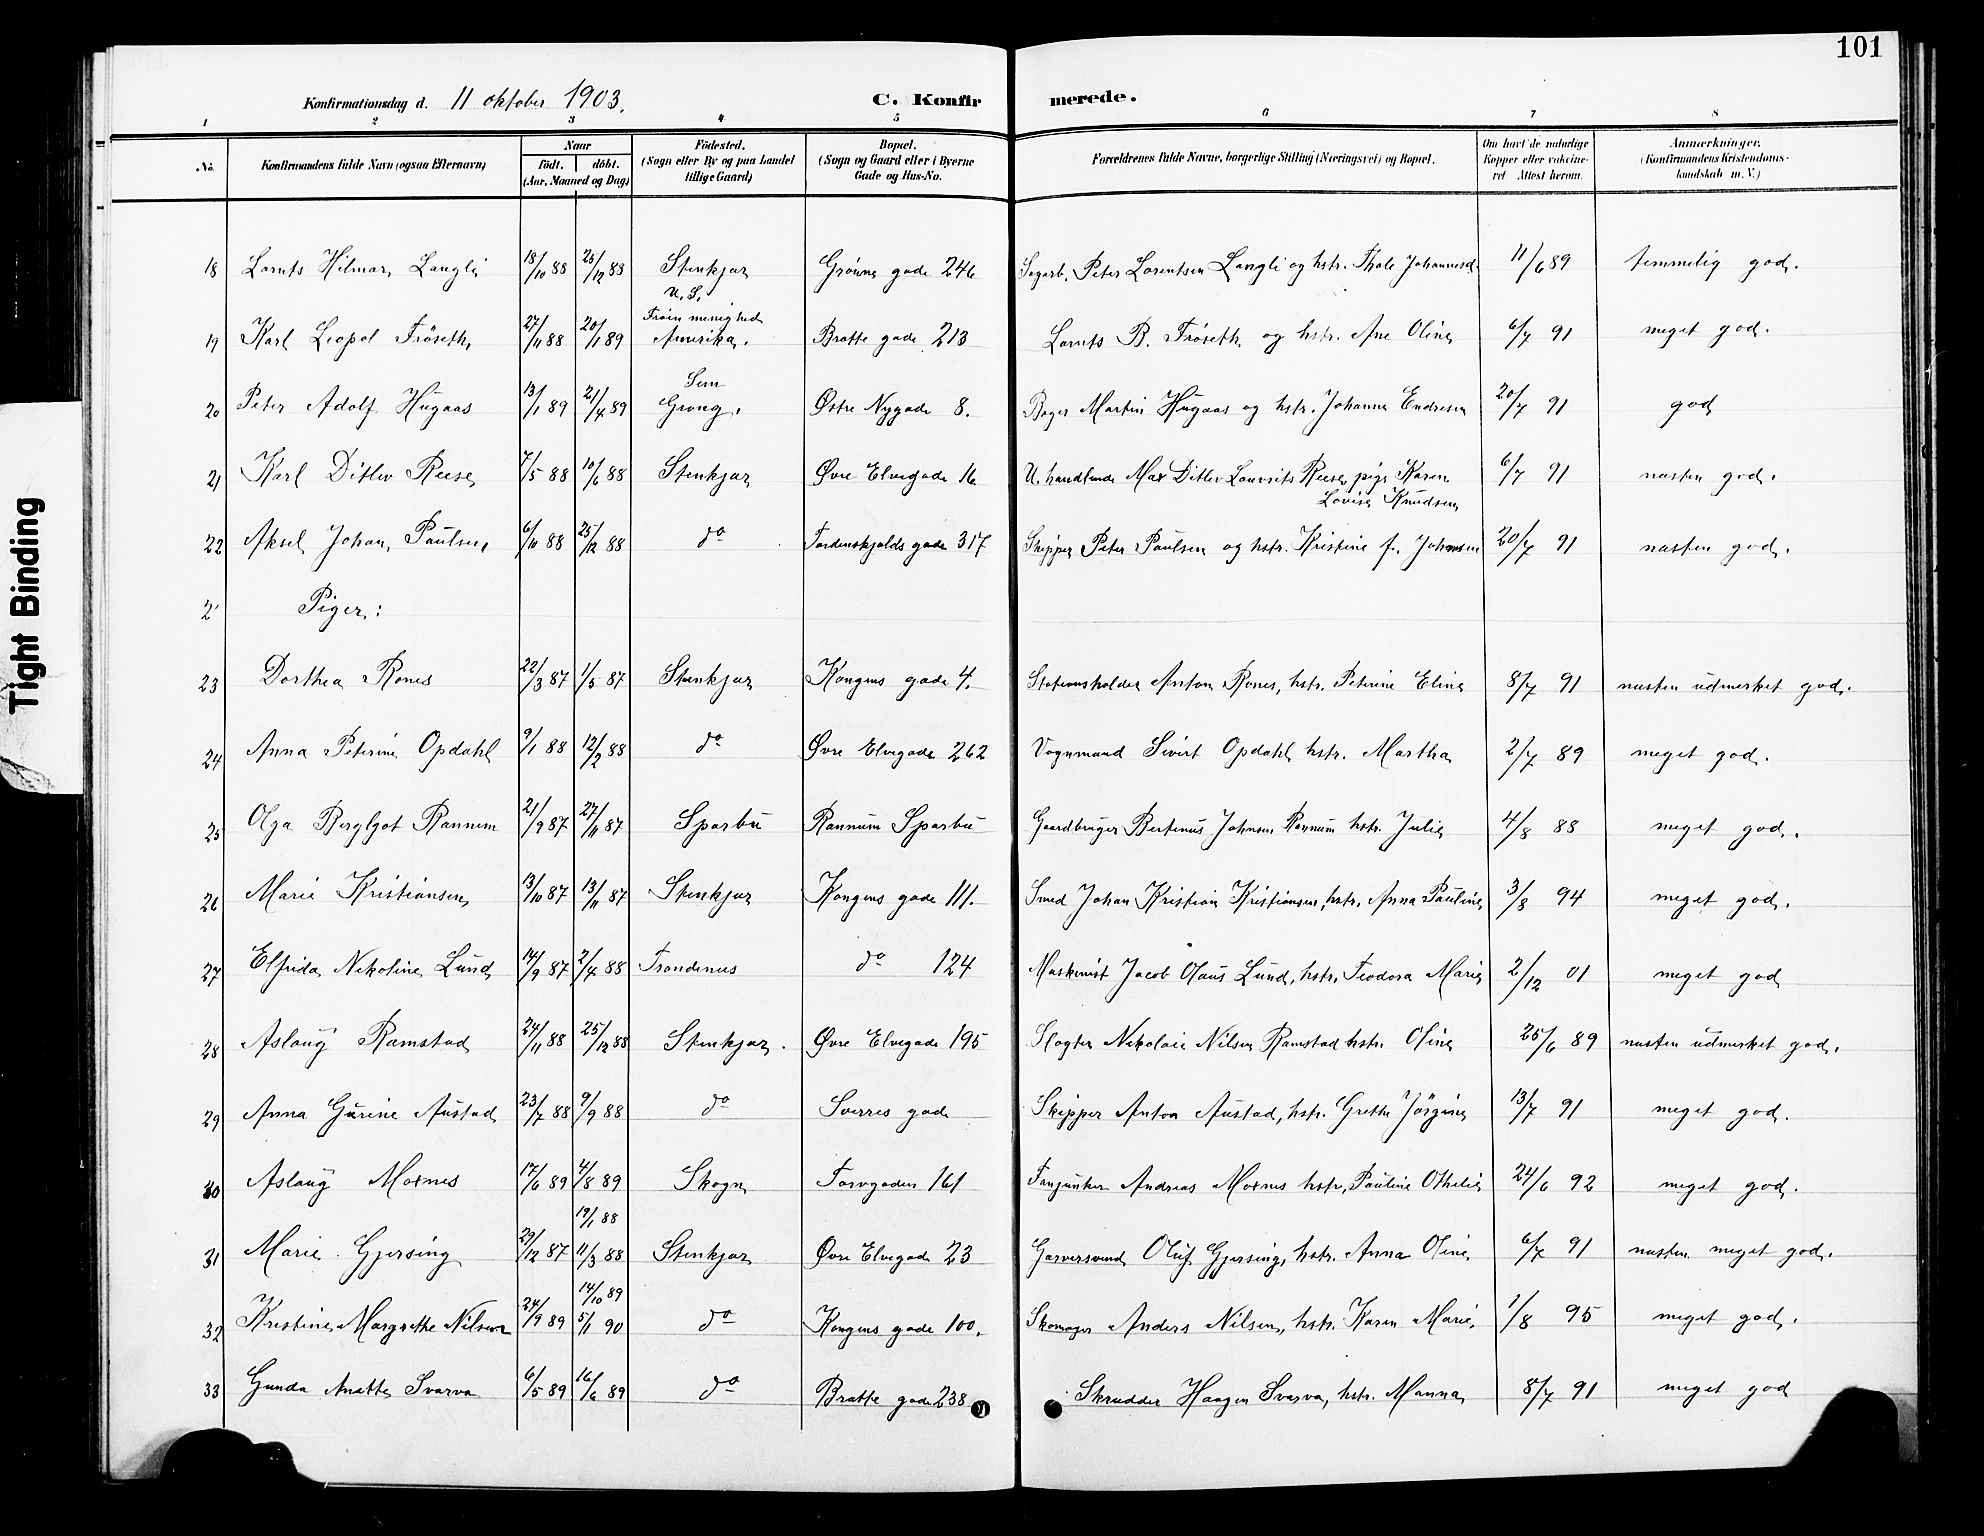 101
Konfirmationsdag d. 11 oktober 1903.
C. Konfirmerede.
1 2 3 4 5 6 7 8
No. Konfirmandens fulde Navn (ogsaa Efternavn) Naar født. døbt. (Aar, Maaned og Dag) Fødested. (Sogn eller By og paa Landet tillige Gaard) Bopæl. (Sogn og Gaard eller i Byerne Gade og Hus-No. Forældrenes fulde Navne, borgerlige Stilling (Næringsvei) og Bopæl. Om havt de naturlige Kopper eller vaccineret Attest herom. Anmærkninger. (Konfirmandens Kristendomskundskab m. V.)
18 Lornts Hilmar Langli 18/10 88 26/12 88 Stenkjær Grønne gade 246 Sagarb. Peter Lorentsen Langli og hstr. Thale Johannesd. 11/6 89 temmelig god.
19 Karl Leopol Frøseth 27/11 88 20/1 89 U. S. Frøen menighed Amerika. Bratte gade 213 Lornts B. Frøseth og hstr. Ane Oline 6/7 91 meget god.
20 Peter Adolf Hugaas 13/1 89 21/4 89 Sem Grong. Østre Nygade 8. Bager Martin Hugaas og hstr. Johanna Endresen 20/7 91 god
21 Karl Ditlev Reese 7/5 88 10/6 88 Stenkjær Øvre Elvegade 16 U. handlende Max Ditlev Lauvrits Reese, pige Karen Lovise Knudsen 6/7 91 næsten god.
22 Aksel Johan Paulsen 6/10 88 25/12 88 do Tordenskjolds gade 317 Skipper Peter Paulsen og hstr. Kristine f. Johnsen 20/7 91 næsten god.
2 Piger:
23 Dorthea Rones 22/3 87 1/5 87 Stenkjær Kongens gade 4. Stationsholder Anton Rones, hstr. Petrine Eline 8/7 91 næsten udmerket god.
24 Anna Peterine Opdahl 9/1 88 12/2 88 do Øvre Elvegade 262 Vognmand Sivert Opdahl hstr. Martha 2/7 89 meget god.
25 Olga Berglyot Rannum 21/9 87 27/11 87 Sparbu Rannum Sparbu Gaardbruger Bertinus Johnsen Rannum hstr. Julie 4/8 88 meget god.
26 Marie Kristiansen 13/10 87 13/11 87 Stenkjær Kongens gade 111. Smed Johan Kristian Kristiansen, hstr. Anna Pauline 3/8 94 meget god.
27 Elfrida Nikoline Lund 14/9 87 2/4 88 Trondenus do 124 Maskinist Jacob Olaus Lund, hstr. Teodora Marie 2/12 01 meget god
28 Aslaug Ramstad 24/11 88 25/12 88 Stenkjær. Øvre Elvegade 195 Slagter Nikolai Nilsen Ramstad hstr. Oline 25/6 89 næsten udmerket god.
29 Anna Gurine Austad 23/7 88 9/9 88 do Sverres gad Skipper Anton Austad, hstr. Grethe Jørgine 13/7 91 meget god.
30 Aslaug Moxnes 17/6 89 4/8 89 Skogn Torvgaden 161 Fanjunker Andreas Moxnes hstr. Pauline Othelie 24/6 92 meget god.
31 Marie Gjersing 29/12 87 19/1 88 11/3 88 Stenkjær Øvre Elvegade 23 Garversvend Oluf Gjersing, hstr. Anna Oline 6/7 91 næsten meget god.
32 Kristine Margrethe Nilsen 24/9 89 14/10 89 5/1 90 do Kongens gade 100. Skomager Anders Nilsen, hstr. Karen Marie 1/8 95 meget god.
33 Gunda Anette Svarva 6/5 89 16/6 89 do Bratte gade 238 Skrædder Haagen Svarva, hstr. Manna 8/7 91 meget god
Tight Binding